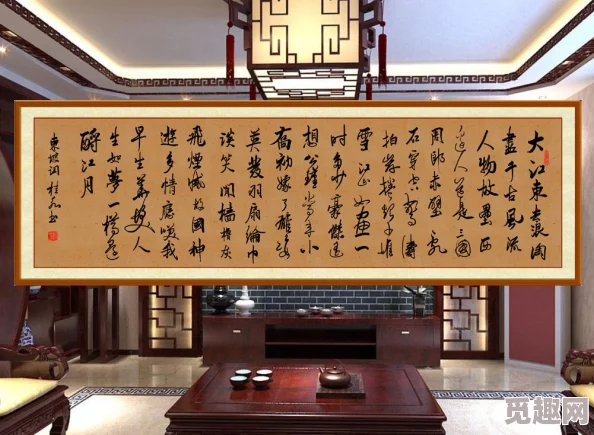 大江東去浪淘
盡千古風流
人物故壘西
邊人道是三國
周郎赤壁亂
石穿空驚濤
拍岸捲起千堆
雪江山如畫一
時多少豪傑遥
想公瑾當年小
喬初嫁了雄姿
英發羽扇綸巾
談笑間檣櫓灰
飛煙滅故國神
遊多情應笑我
早生華髮人
生如夢一樽還
酹江月
東坡詞桂書
觅趣网